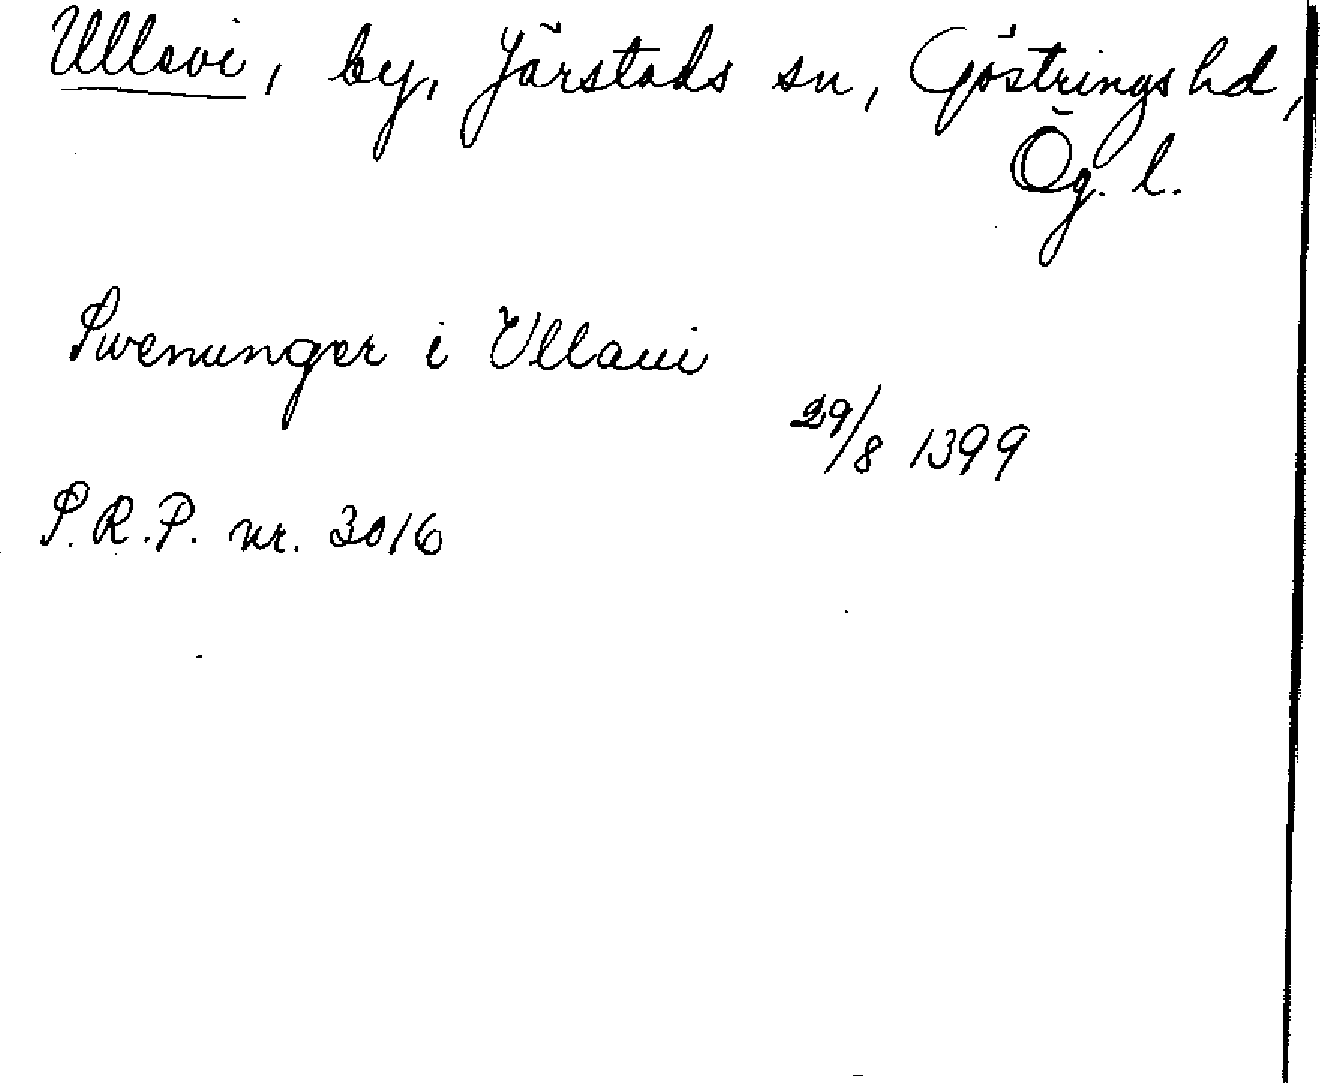 Ullevi, by, Järstads sn, Göstrings hd,
Ög. l.
Swenunger i Vllaui
29/8 1399
S.R.P. nr. 3016